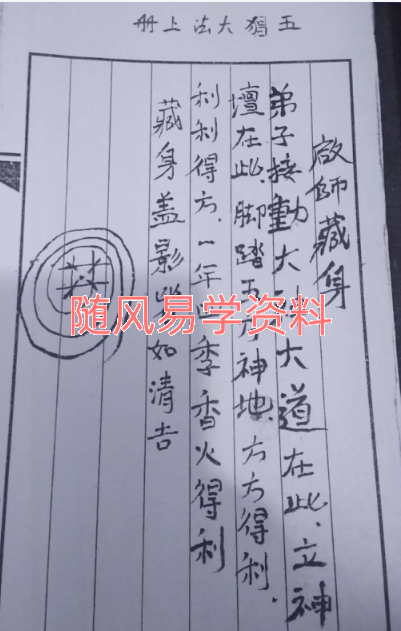 五猖大法上册
啟師藏身
弟子接動大大道在此、立神
壇在此、脚踏五方神地、方方得利.
利利得方、一年四季香火得利
藏身盖影如清吉
随风易学资料